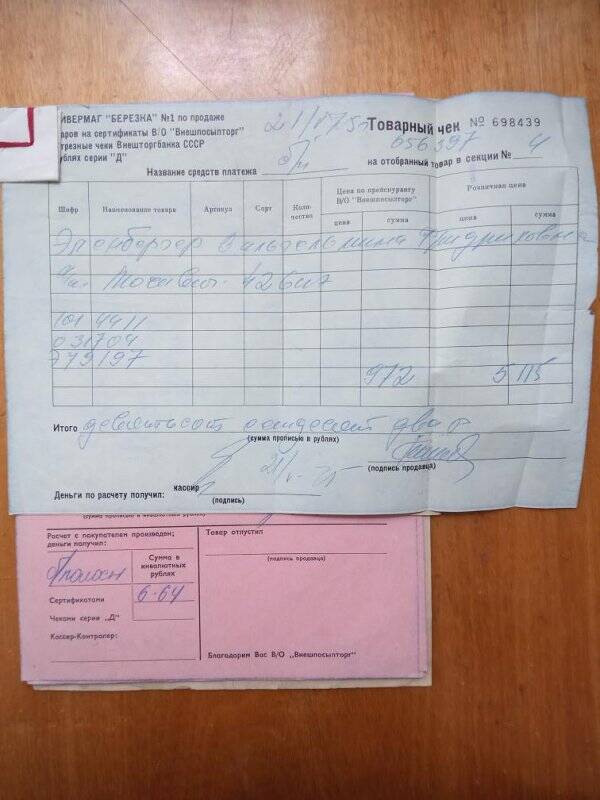 ИВЕРМАГ "БЕРЕЗКА" №1 по продаже
аров на сертификаты В/О "Внешпосылторг"
трезные чеки Внешторгбанка СССР
ублях серии "Д"
Товарный чек № 698439
656397
Название средств платежа б/н на отобранный товар в секции № 4
Шифр Наименование товара Артикул Сорт Коли-чество Цена по прейскуранту В/О "Внешпосылторг" Розничная цена
цена сумма цена сумма
Вильгельмина Фридриховна
Москвич 426
101 4411
031704
779197
972 5115
Итого девятьсот семьдесят два р
(сумма прописью в рублях)
(подпись продавца)
Деньги по расчету получил: кассир
(подпись)
(сумма прописью в инвалютных рублях)
Расчет с покупателем произведен;
деньги получил:
Товар отпустил
(подпись продавца)
Сумма в инвалютных рублях
Сертификатами 6-64
Чеками серии „Д"
Кассир-Контролер:
Благодарим Вас В/О „Внешпосылторг"